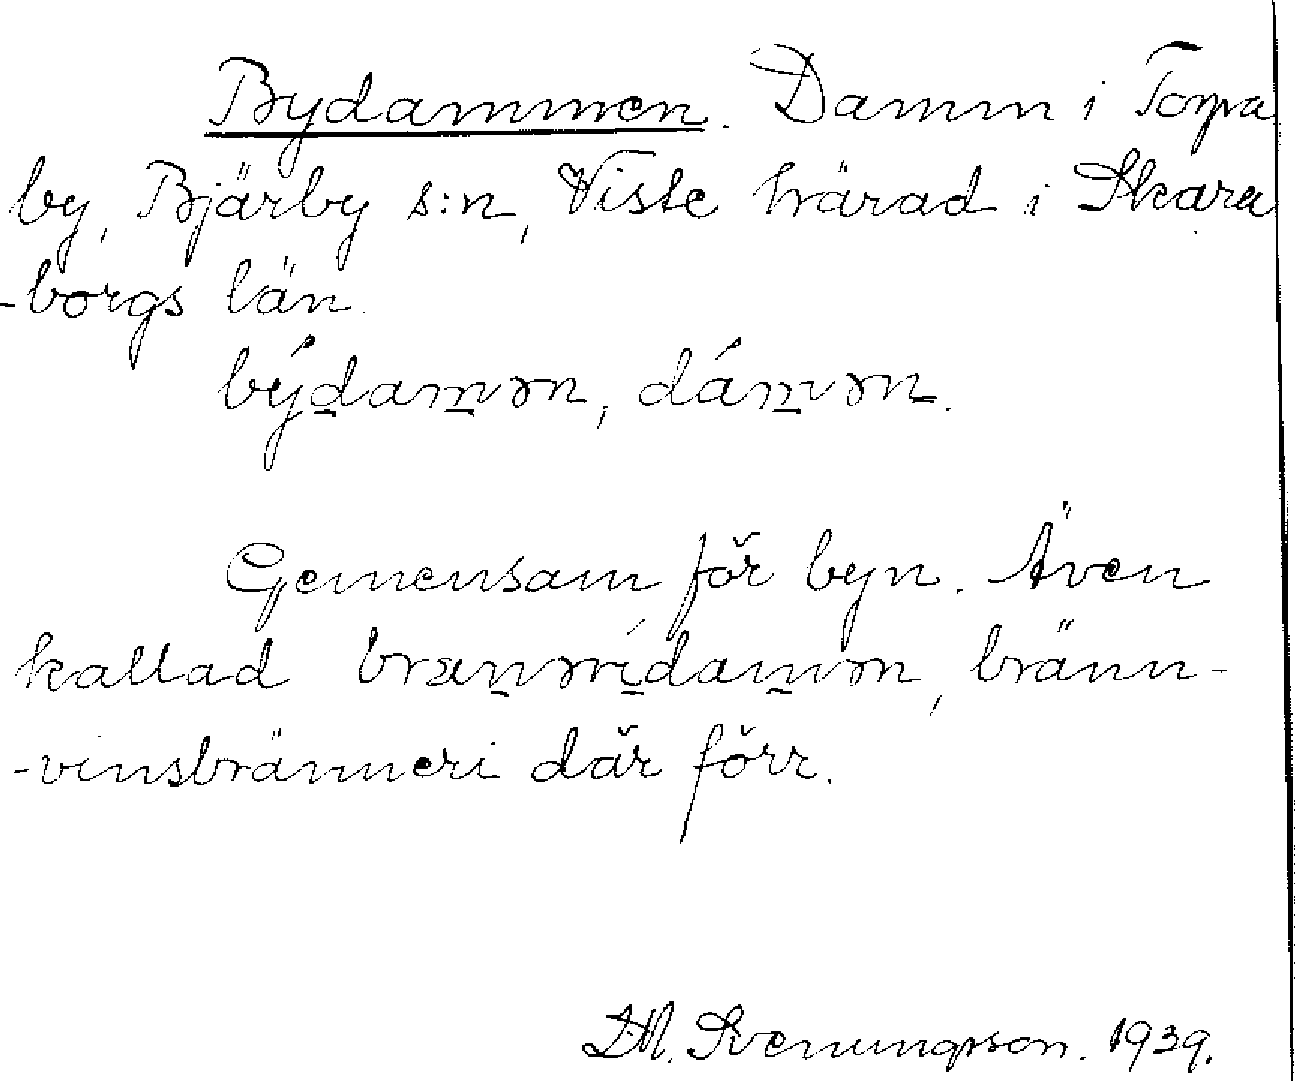 Bydammen. Damm i Torpa
by, Bjärby s:n, Viste härad i Skara
-borgs län.
býdamən, dámən.
Gemensam för byn. Även
kallad brænərídamən, bränn-
-vinsbränneri där förr.
Svenungsson. 1939.